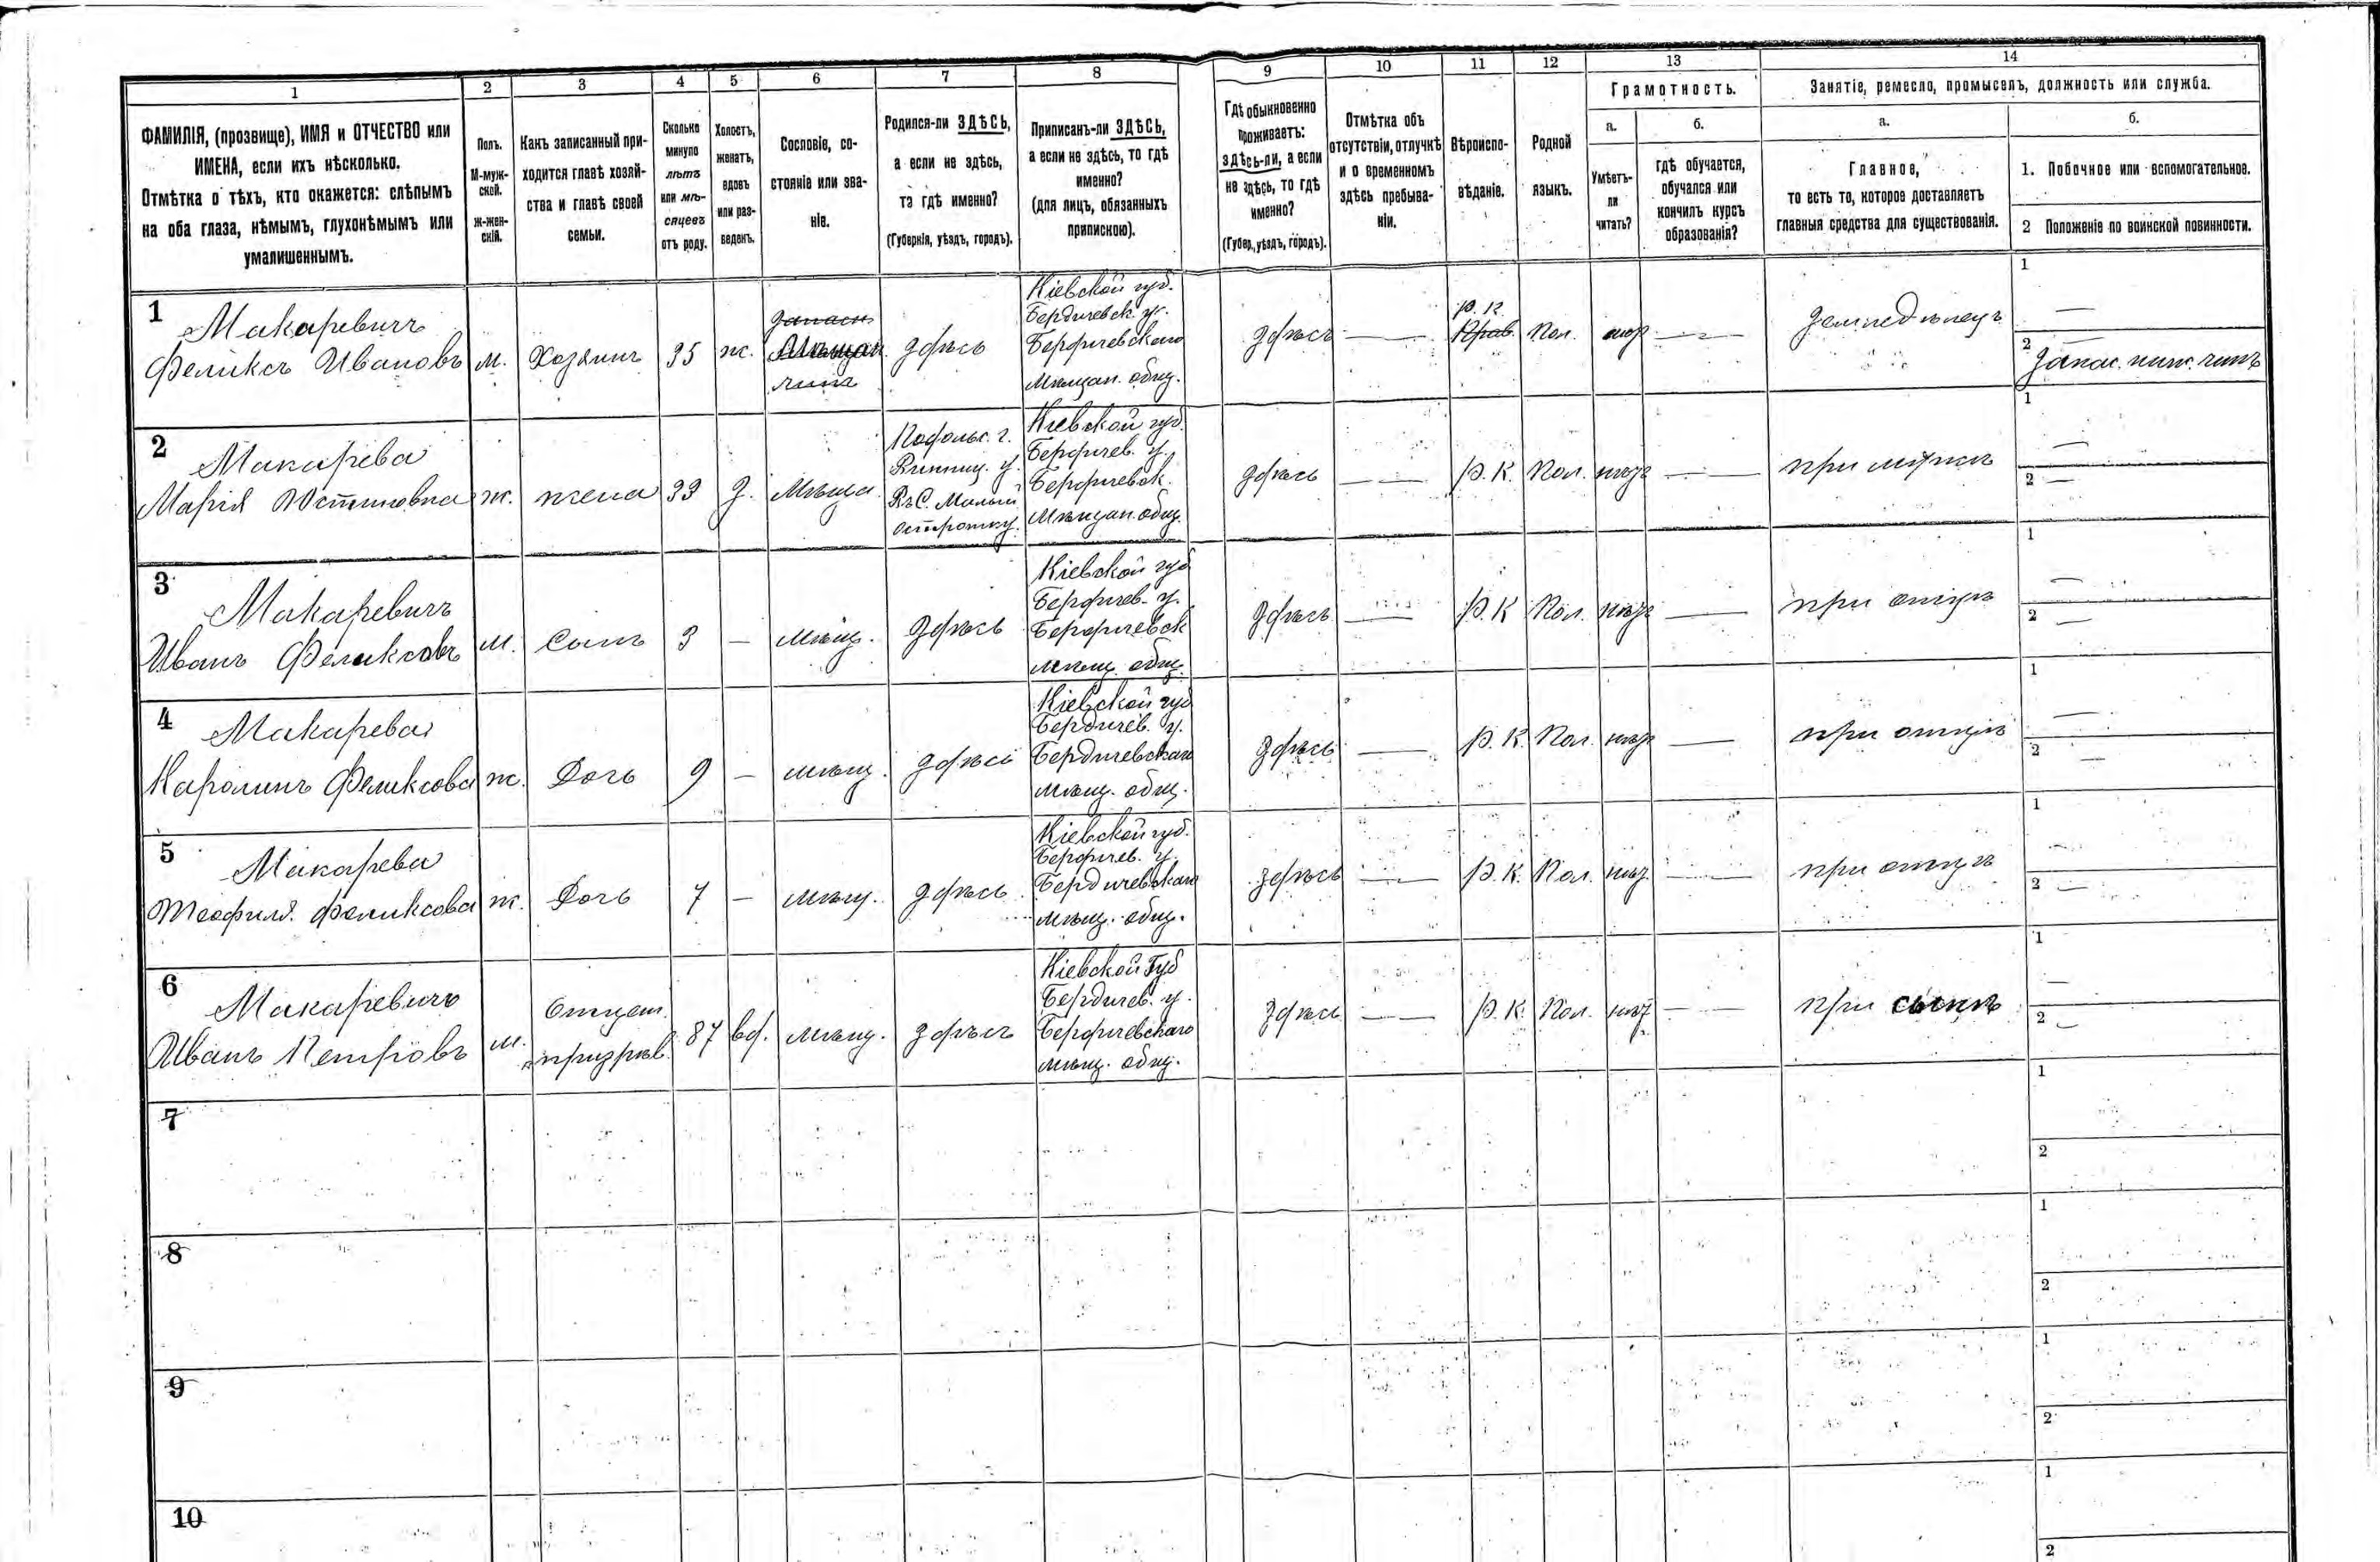 1 2 3 4 5 6 7 8 9 10 11 12 13 14
ФАМИЛІЯ, (прозвище), ИМЯ и ОТЧЕСТВО или
ИМЕНА, если ихъ нѣсколько.
Отмѣтка о тѣхъ, кто окажется: слѣпымъ
на оба глаза, нѣмымъ, глухонѣмымъ или
умалишеннымъ.
Полъ.
М-муж-
ской.
Ж-жен-
скій.
Какъ записанный при-
ходится главѣ хозяй-
ства и главѣ своей
семьи.
Сколько
минуло
лѣтъ
или мѣ-
сяцевъ
отъ роду.
Холостъ,
женатъ,
вдовъ
или раз-
веденъ.
Сословіе, со-
стояніе или зва-
ніе.
Родился-ли ЗДѢСЬ,
а если не здѣсь,
то гдѣ именно?
(Губернія, уѣздъ, городъ).
Приписанъ-ли ЗДѢСЬ,
а если не здѣсь, то гдѣ
именно?
(для лицъ, обязанныхъ
припискою).
Гдѣ обыкновенно
проживаетъ:
здѣсь-ли, а если
не здѣсь, то гдѣ
именно?
(Губер., уѣздъ, городъ).
Отмѣтка объ
отсутствіи, отлучкѣ
и о временномъ
здѣсь пребыва-
ніи.
Вѣроиспо-
вѣданіе.
Родной
языкъ.
Грамотность.
а.
Умѣетъ-
ли
читать?
б.
гдѣ обучается,
обучался или
кончилъ курсъ
образованія?
Занятіе, ремесло, промыселъ, должность или служба.
а.
Главное,
то есть то, которое доставляетъ
главныя средства для существованія.
б.
1. Побочное или вспомогательное.
2 Положеніе по воинской повинности.
1
Макаревичъ
Феликсъ Ивановъ
м.
Хозяинъ
35
ж.
Мѣщан
здѣсь
Кіевской губ.
Бердичевск. у.
Бердичевскаго
мѣщан. общ.
здѣсь
—
Р. К.
Прав.
Пол.
—
земледѣлецъ
1 —
2 Запас. ниж. чинъ
2
Макарева
Марія Устиновна
ж.
жена
33
з.
Мѣща.
Подольс. г.
Винниц. у.
Въ С. Малый
Кіевской губ.
Бердичев. у.
Бердичевск.
Мѣщан. общ.
здѣсь
—
Р. К.
Пол.
—
при мужѣ
1 —
2 —
3
Макаревичъ
Иванъ Феликсовъ
м.
Сынъ
3
—
мѣщ.
здѣсь
Кіевской губ
Бердичев. у.
Бердичевск
мѣщ. общ.
здѣсь
—
Р. К
Пол.
—
при отцѣ
1 —
2 —
4
Макарева
Каролинъ Феликсова
ж.
Дочь
9
—
мѣщ.
здѣсь
Кіевской губ
Бердичев. у.
Бердичевскаго
мѣщ. общ.
здѣсь
—
Р. К.
Пол.
—
при отцѣ
1 —
2 —
5
Макарева
Теофиля Феликсова
ж.
Дочь
7
—
мѣщ.
здѣсь
Кіевской губ.
Бердичев. у.
Бердичевскаго
мѣщ. общ.
здѣсь
—
Р. К.
Пол.
—
при отцѣ
1 —
2 —
6
Макаревичъ
Иванъ Петровъ
м.
87
вд.
мѣщ.
здѣсь
Кіевской Губ
Бердичев. у.
Бердичевскаго
мѣщ. общ.
здѣсь
—
Р. К.
Пол.
—
при сынѣ
1 —
2 —
7
1
2
8
1
2
9
1
2
10
1
2